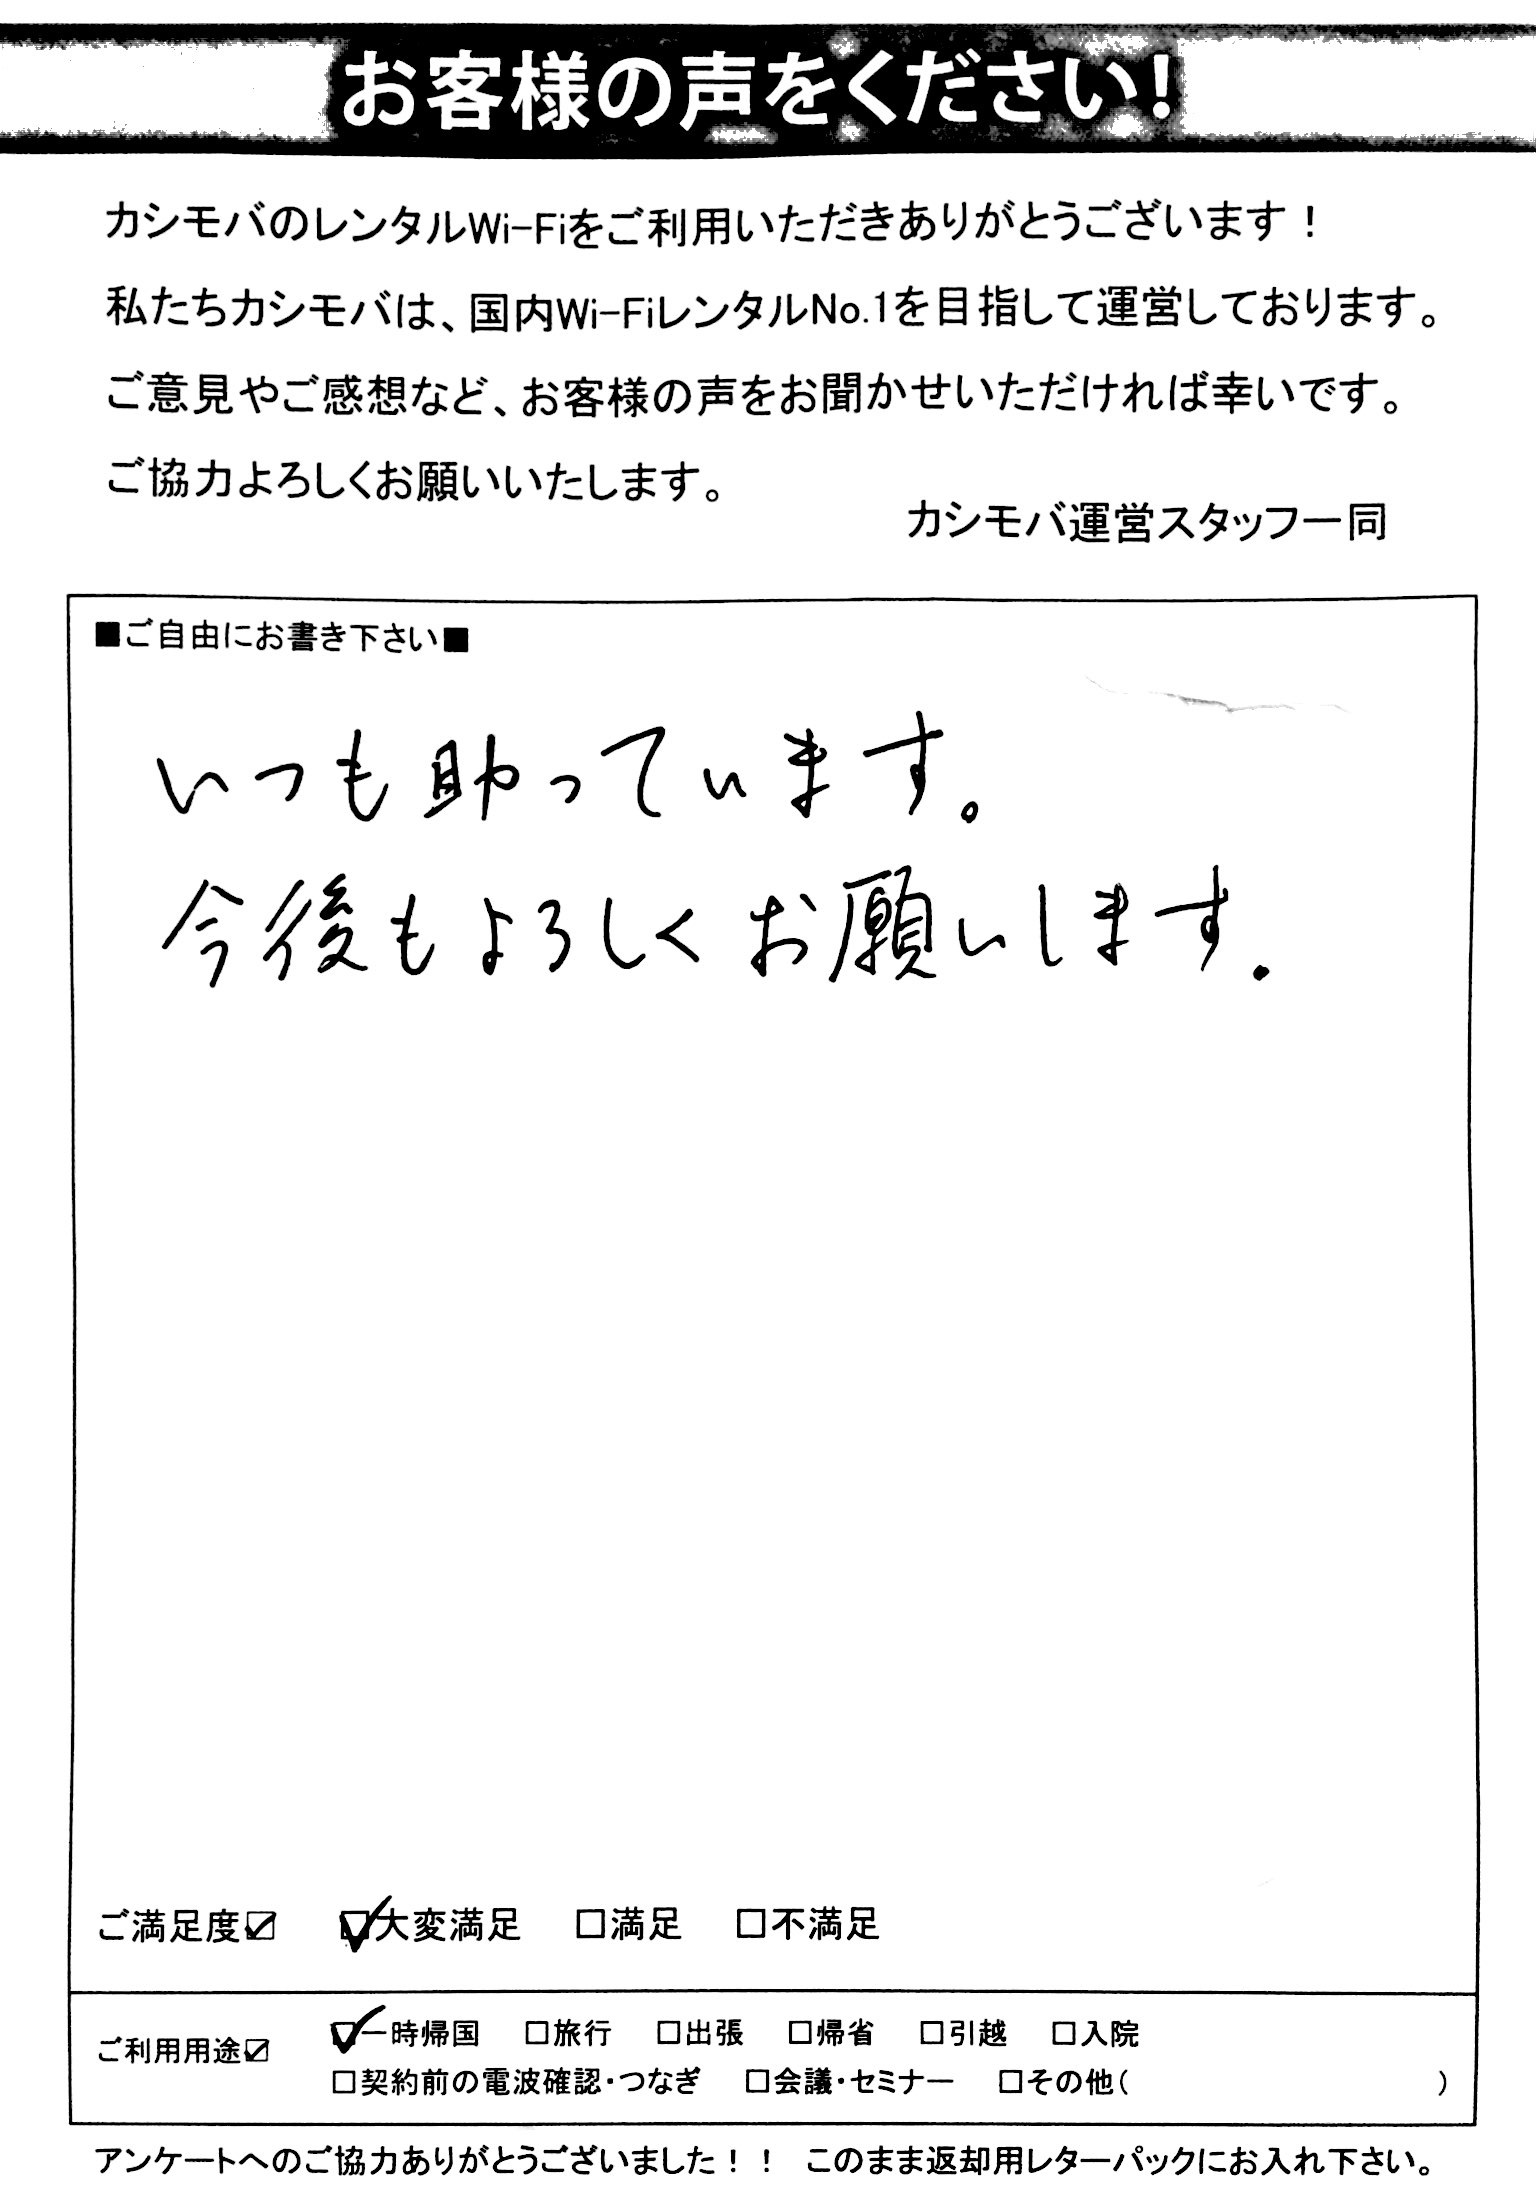 お客様の声をください!
カシモバのレンタルWi-Fiをご利用いただきありがとうございます！
私たちカシモバは、国内Wi-FiレンタルNo.1を目指して運営しております。
ご意見やご感想など、お客様の声をお聞かせいただければ幸いです。
ご協力よろしくお願いいたします。
カシモバ運営スタッフ一同
■ご自由にお書き下さい■
いつも助っています。
今後もよろしくお願いします.
ご満足度☑ ☑大変満足 □満足 □不満足
ご利用用途☑ ☑一時帰国 □旅行 □出張 □帰省 □引越 □入院
□契約前の電波確認・つなぎ □会議・セミナー □その他( )
アンケートへのご協力ありがとうございました！！ このまま返却用レターパックにお入れ下さい。